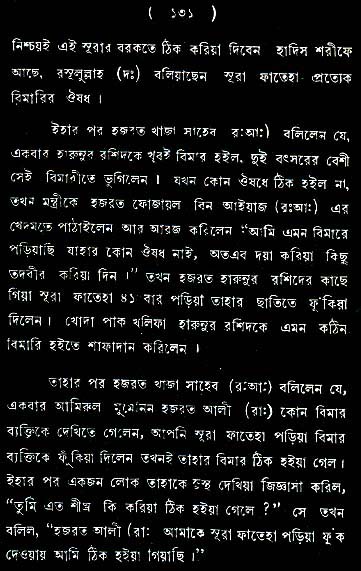 ( ১৩১ )
নিশ্চয়ই এই সূরার বরকতে ঠিক করিয়া দিবেন হাদিস শরীফে
আছে, রসূলুল্লাহ (দঃ) বলিয়াছেন সূরা ফাতেহা প্রত্যেক
বিমারির ঔষধ ।
ইহার পর হজরত খাজা সাহেব রঃআঃ) বলিলেন যে,
একবার হারুনুর রশিদকে খুবই বিমার হইল, দুই বৎসরের বেশী
সেই বিমারীতে ভুগিলেন । যখন কোন ঔষধে ঠিক হইল না,
তখন মন্ত্রীকে হজরত ফোজায়ল বিন আইয়াজ (রঃআঃ) এর
খেদমতে পাঠাইলেন আর আরজ করিলেন "আমি এমন বিমারে
পড়িয়াছি যাহার কোন ঔষধ নাই, অতএব দয়া করিয়া কিছু
তদবীর করিয়া দিন ।" তখন হজরত হারুনুর রশিদের কাছে
গিয়া সূরা ফাতেহা ৪১ বার পড়িয়া তাহার ছাতিতে ফুঁকিয়া
দিলেন । খোদা পাক খলিফা হারুনুর রশিদকে এমন কঠিন
বিমারি হইতে শাফাদান করিলেন ।
তাহার পর হজরত খাজা সাহেব (রঃআঃ) বলিলেন যে,
একবার আমিরুল মুমেনিন হজরত আলী (রাঃ) কোন বিমার
ব্যক্তিকে দেখিতে গেলেন, আপনি সূরা ফাতেহা পড়িয়া বিমার
ব্যক্তিকে ফুঁকিয়া দিলেন তখনই তাহার বিমার ঠিক হইয়া গেল ।
ইহার পর একজন লোক তাহাকে সুস্থ দেখিয়া জিজ্ঞাসা করিল,
"তুমি এত শীঘ্র কি করিয়া ঠিক হইয়া গেলে ?" সে তখন
বলিল, "হজরত আলী (রাঃ আমাকে সূরা ফাতেহা পড়িয়া ফুঁক
দেওয়ায় আমি ঠিক হইয়া গিয়াছি ।"